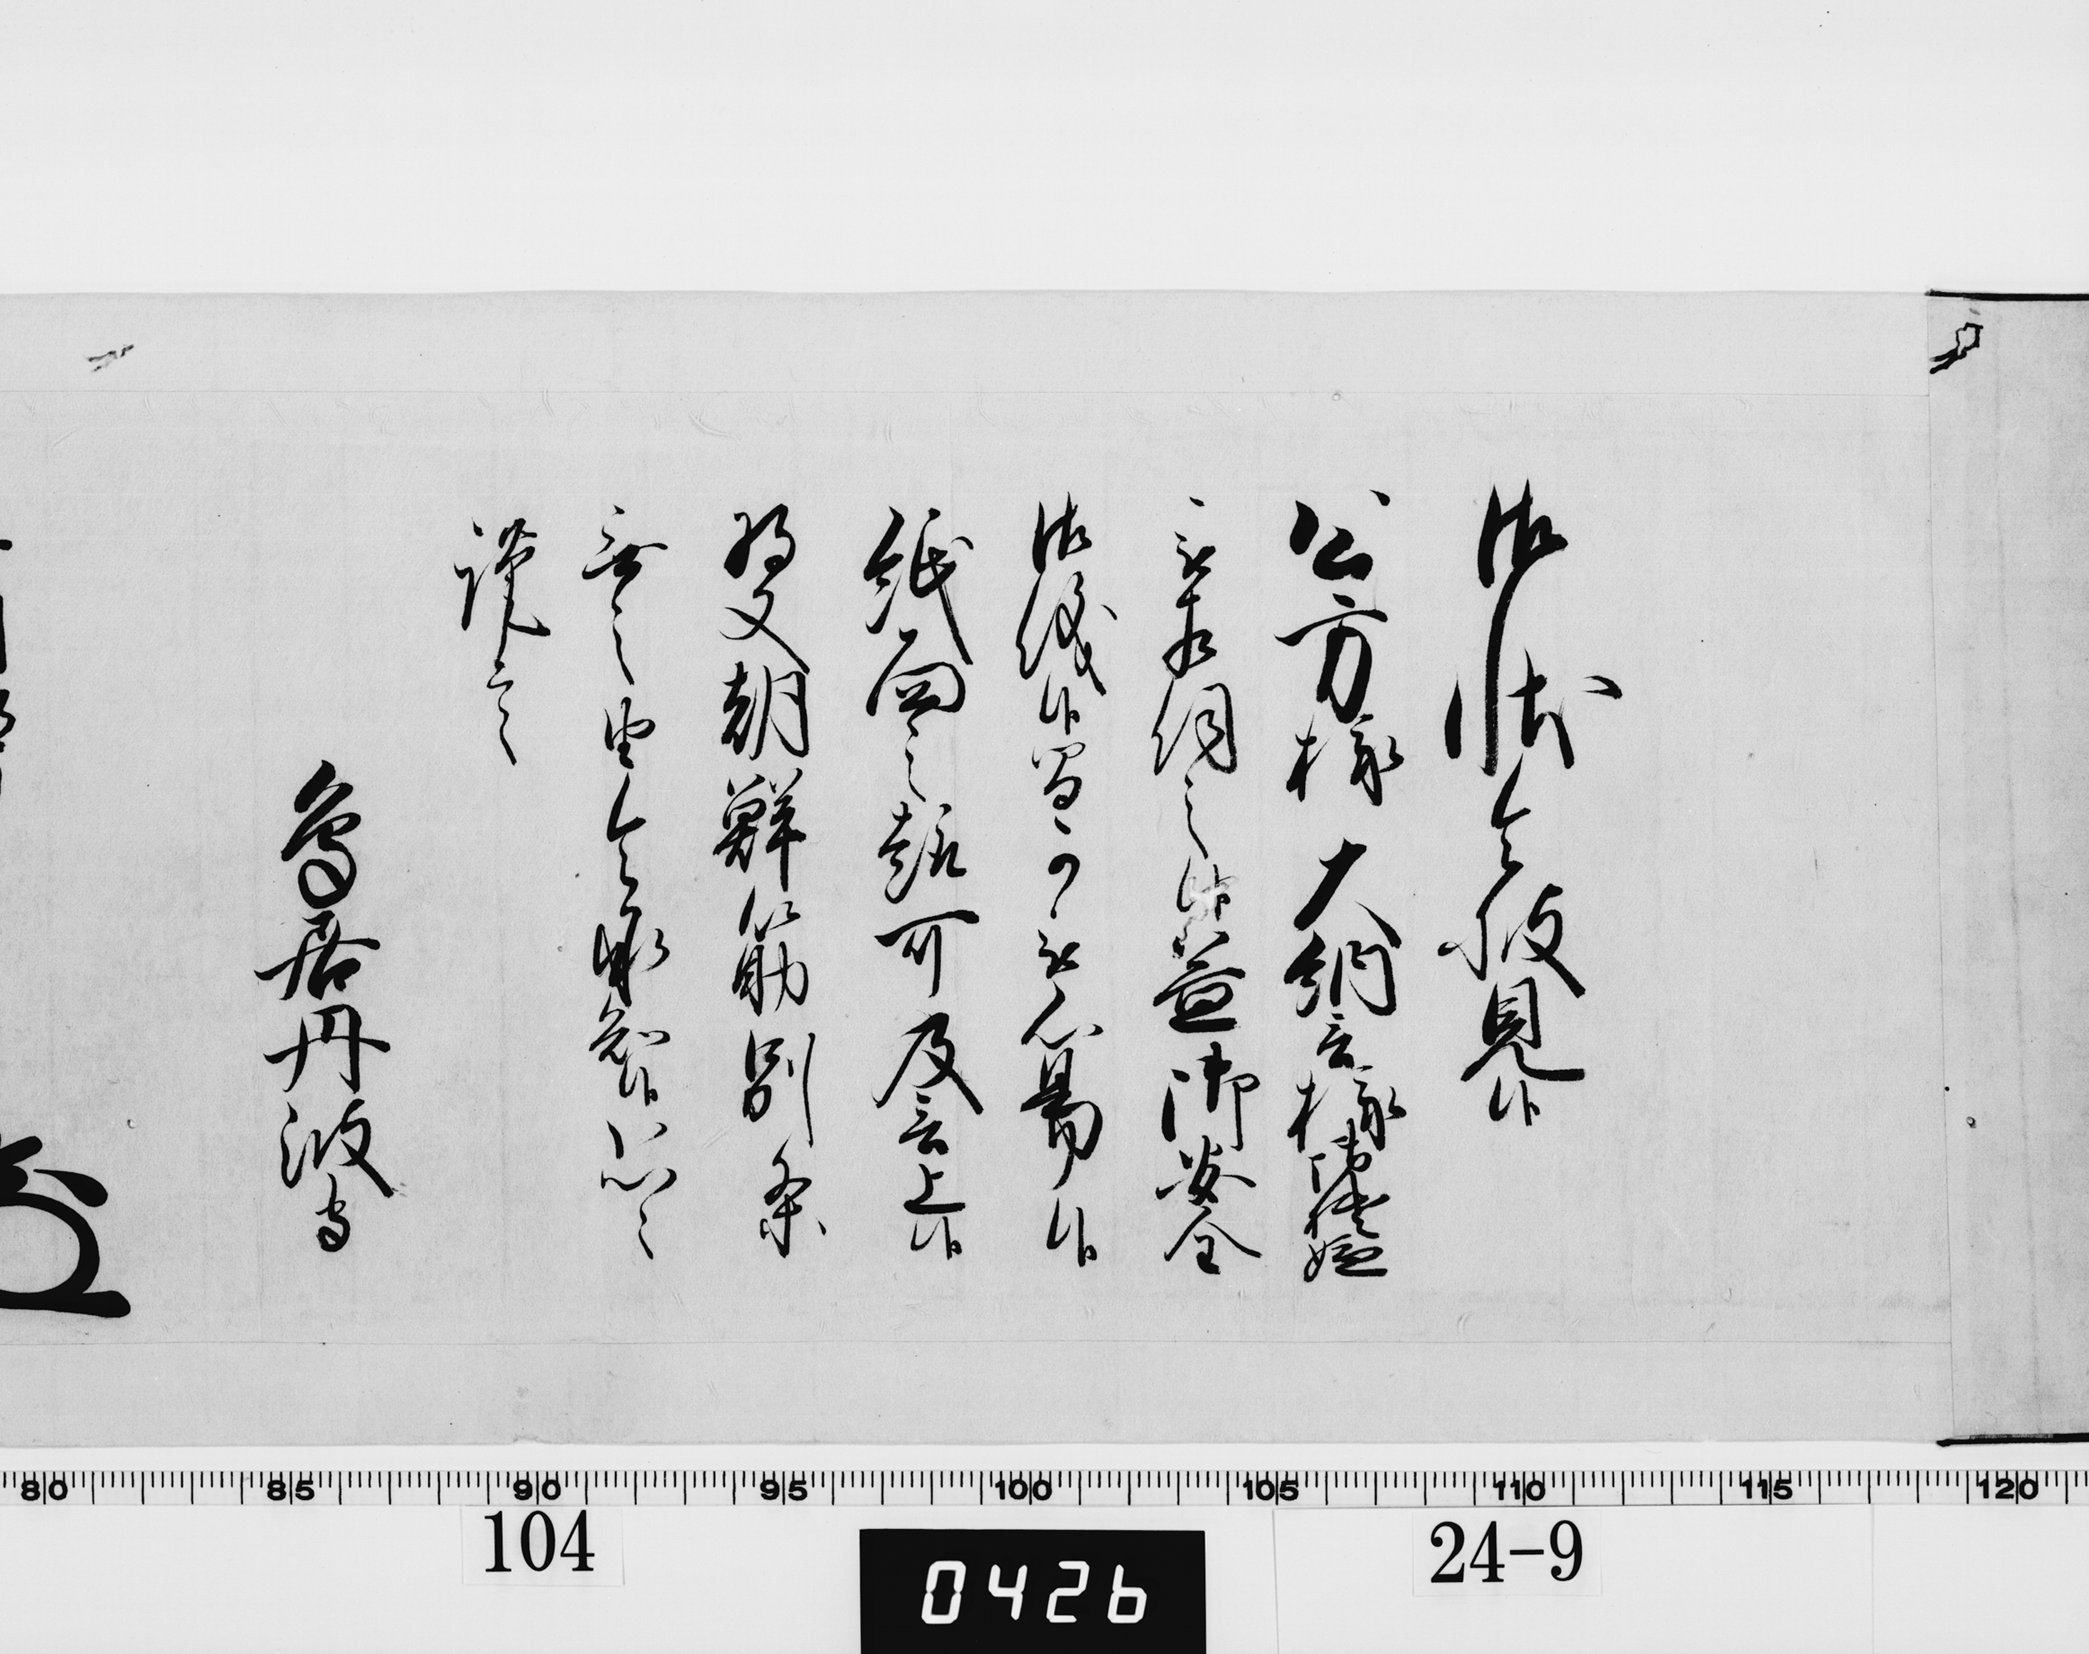 御状令披見候
公方様大納言様倍御機嫌
被相伺之候益御安全
御儀候間可被心易候
紙面之趣可及言上候
将又朝鮮筋別条
無之由令承知候恐々
謹言
鳥居丹波守
80 85 90 95 100 105 110 115 120
104
0426
24-9